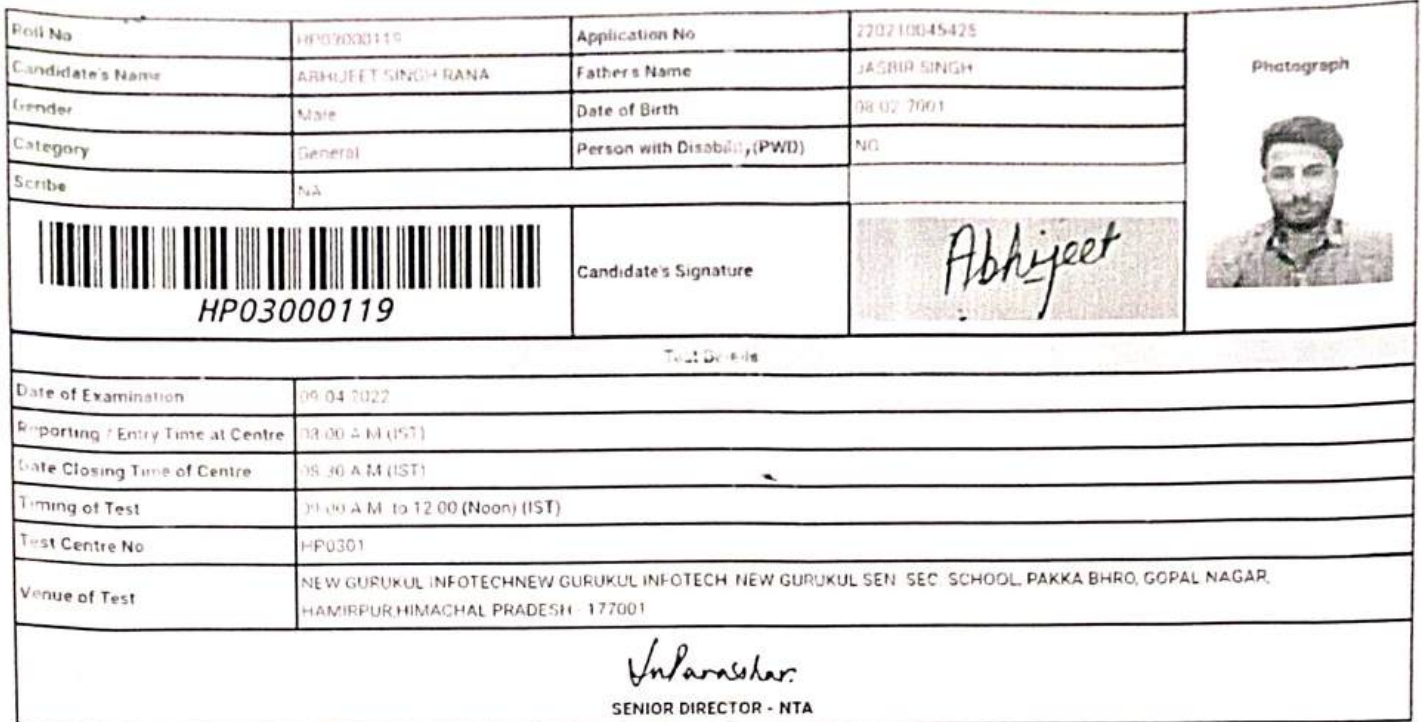 Roll No HP03000119 Application No 220210045425
Photograph
Candidate's Name ABHIJEET SINGH RANA Father's Name JASBIR SINGH
Gender Male Date of Birth 08.02.2001
Category General Person with Disability,(PWD) NO
Scribe NA
HP03000119
Candidate's Signature
Abhijeet
Test Details
Date of Examination 09.04.2022
Reporting / Entry Time at Centre 08.00 A.M (IST)
Gate Closing Time of Centre 08.30 A.M (IST)
Timing of Test 09.00 A.M. to 12.00 (Noon) (IST)
Test Centre No HP0301
Venue of Test NEW GURUKUL INFOTECHNEW GURUKUL INFOTECH NEW GURUKUL SEN. SEC. SCHOOL, PAKKA BHRO, GOPAL NAGAR,
HAMIRPUR,HIMACHAL PRADESH - 177001
SENIOR DIRECTOR - NTA